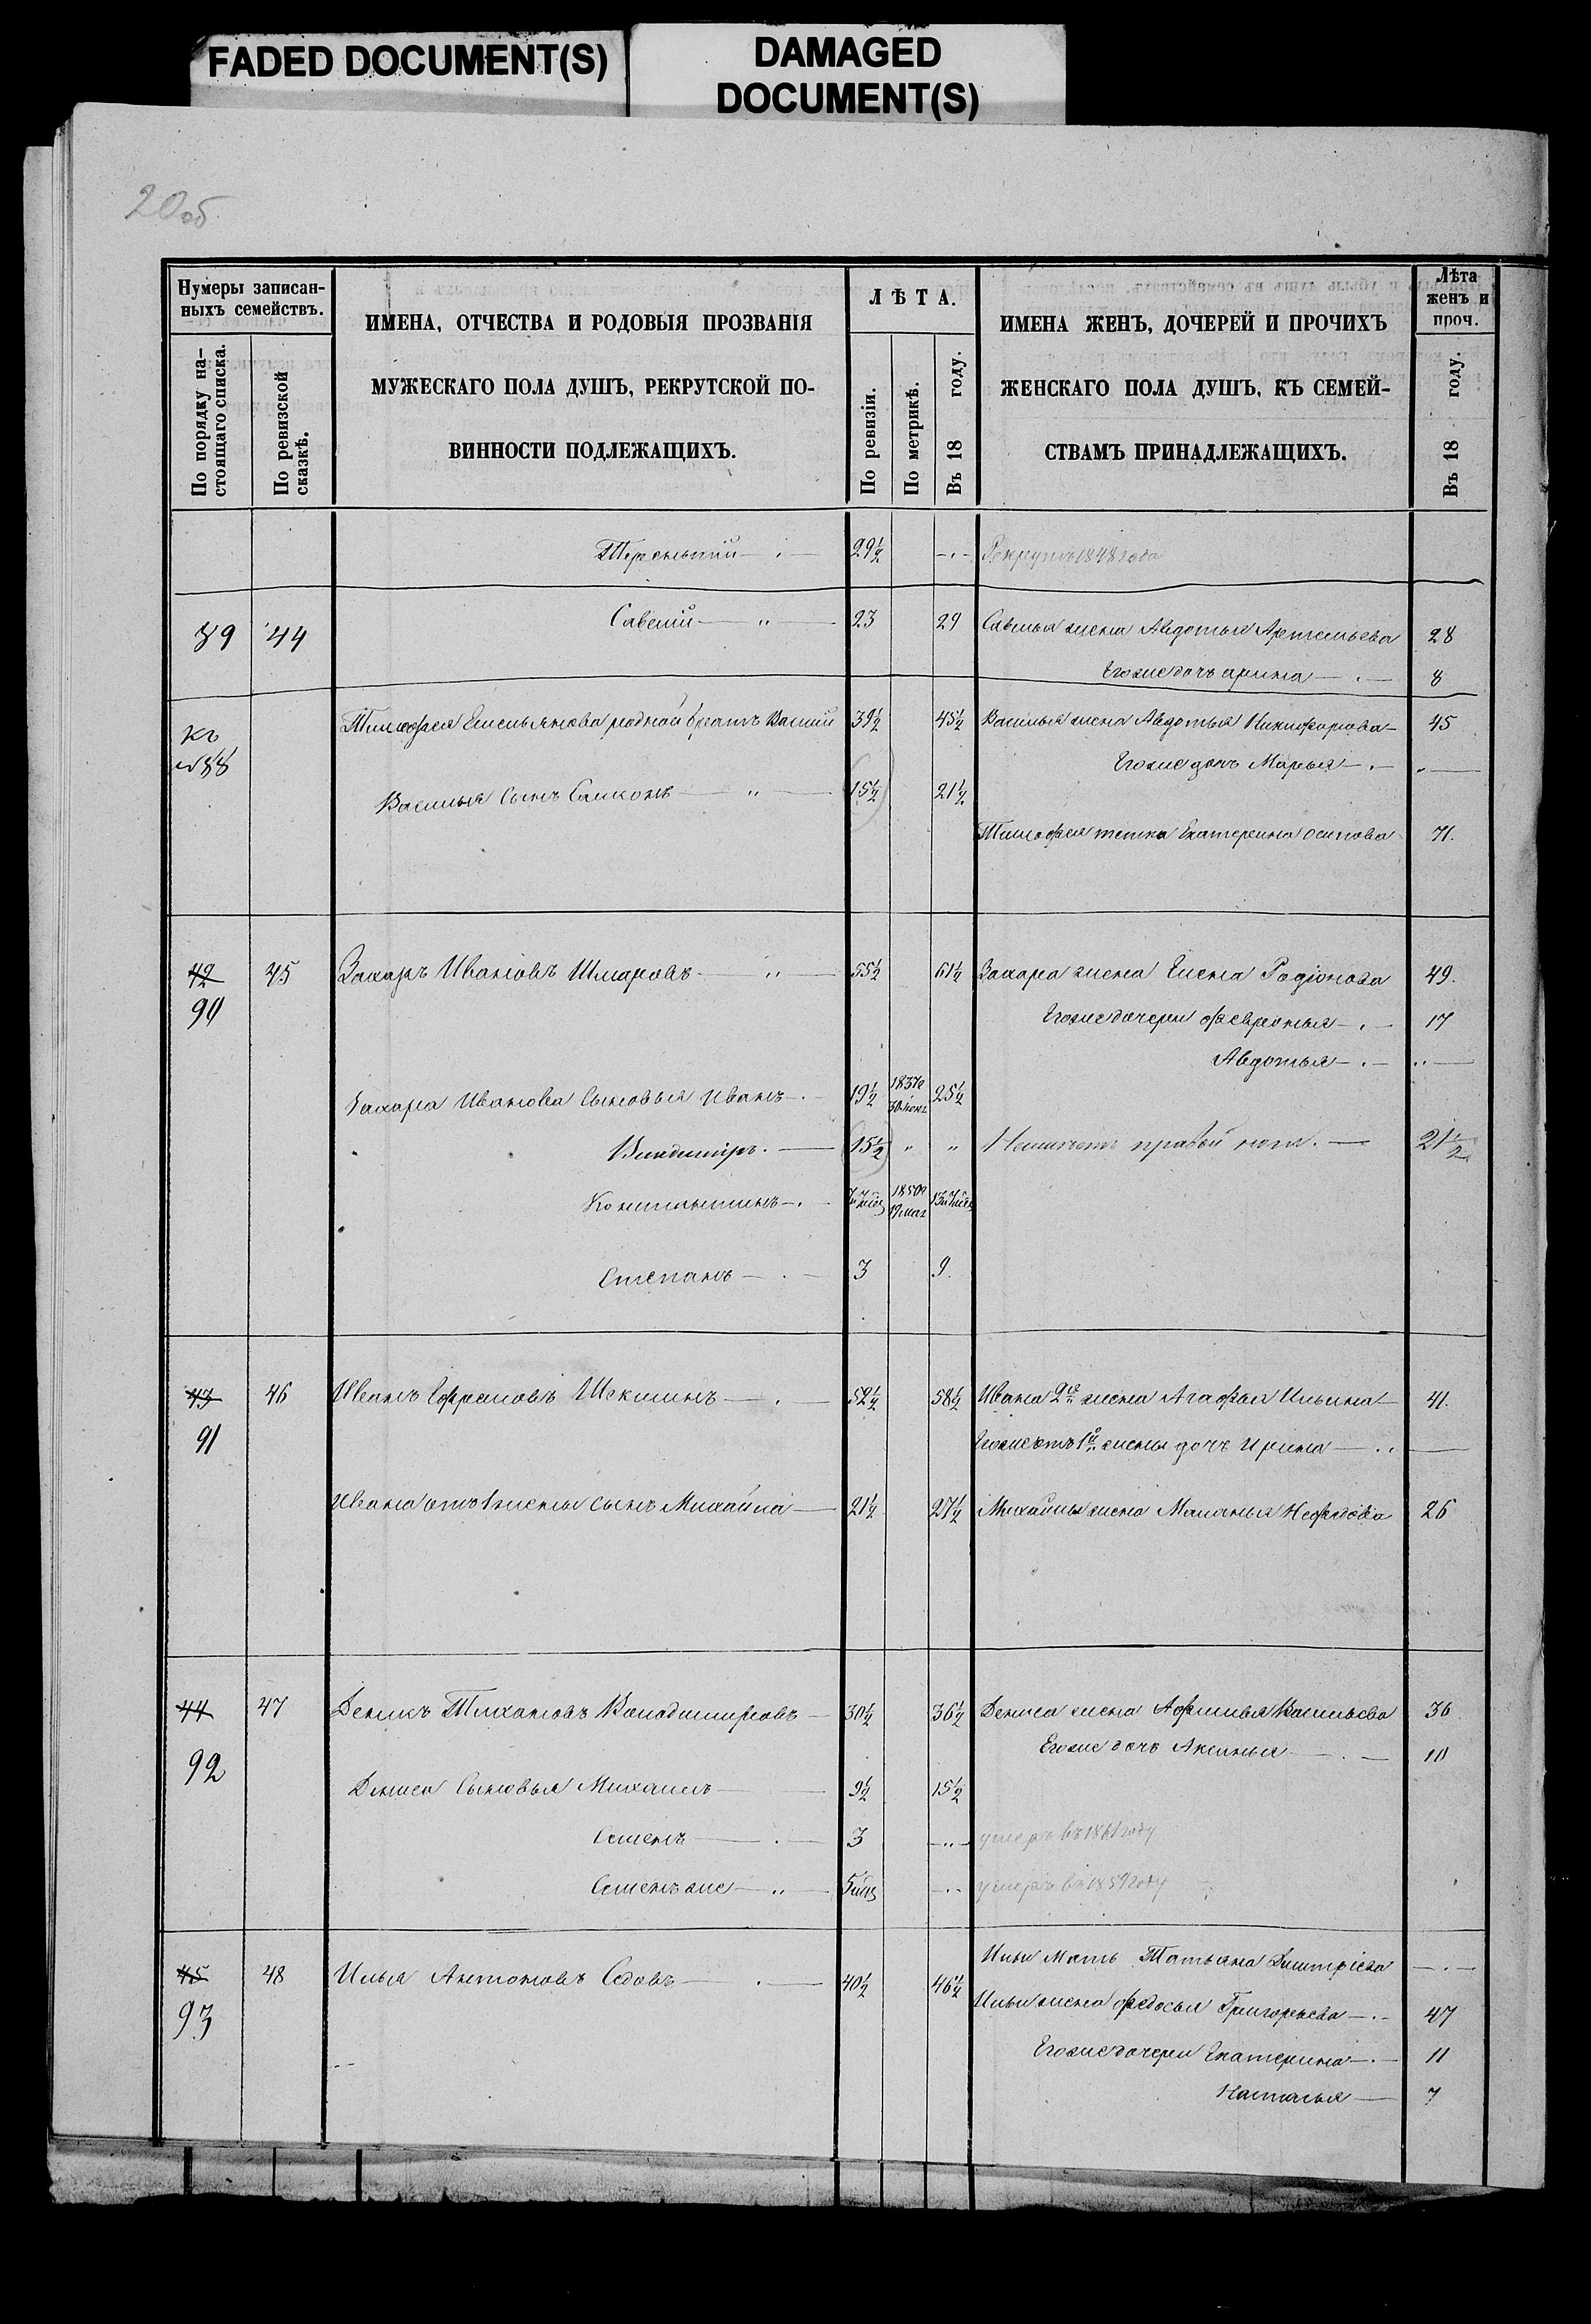 FADED DOCUMENT(S)
DAMAGED
DOCUMENT(S)
20об.
Нумеры записан-
ныхъ семействъ.
По порядку на-
стоящаго списка.
По ревизской
сказкѣ.
ИМЕНА, ОТЧЕСТВА И РОДОВЫЯ ПРОЗВАНІЯ
МУЖЕСКАГО ПОЛА ДУШЪ, РЕКРУТСКОЙ ПО-
ВИННОСТИ ПОДЛЕЖАЩИХЪ.
ЛѢТА.
По ревизіи.
По метрикѣ.
Въ 18 году.
ИМЕНА ЖЕНЪ, ДОЧЕРЕЙ И ПРОЧИХЪ
ЖЕНСКАГО ПОЛА ДУШЪ, КЪ СЕМЕЙ-
СТВАМЪ ПРИНАДЛЕЖАЩИХЪ.
Лѣта
женъ и
проч.
Въ 18 году.
Терентий — 29½ — Рекрутъ 1848 года
89 44 Савелий — " — 23 29 Савелья жена Авдотья Артемьева 28
Егоже дочь арина — 8
Къ №88 Тимофея Емельянова родной братъ Василий 39½ 45½ Василья жена Авдотья Никифорова 45
Егоже дочь Марья —
Василья Сынъ Самсонъ — " — 15½ 21½
Тимофея тетка Екатерина осипова 71.
42 45 Захаръ Ивановъ Шмаровъ — " — 55½ 61½ Захара жена Елена Родіонова 49.
90 Егоже дочери февронья — 17
Авдотья —
Захара Иванова Сыновья Иванъ — 19½ 1837 30 25½
Владимiръ — 15½ " " Неимѣетъ правой ноги. — 21½
Константинъ — 7 1850 19 мая 13
Степанъ — 3 9.
43 46 Иванъ Ефремовъ — 52½ 58½ Ивана 2я жена Агафья Ильина 41.
91 Егоже отъ 1й жены дочь Ирина —
Ивана отъ 1 жены сынъ Михайла — 21½ 27½ Михайлы жена Маланья Нефедова 26
44 47 Денисъ Тихановъ Володимировъ — 30½ 36½ Дениса жена Афимья Васильева 36
92 Егоже дочь Аксинья — 10
Дениса Сыновья Михаилъ — 9½ 15½
Семенъ — 3 — умеръ въ 1861 году
Семенъ же — 5 — умеръ въ 1859 году
45 48 Илья Антоновъ Седовъ — 40½ 46½ Ильи Мать Татьяна Дмитріева —
93 Ильи жена федосья Григорьева — 47
Егоже дочери Екатерина — 11
Наталья — 7